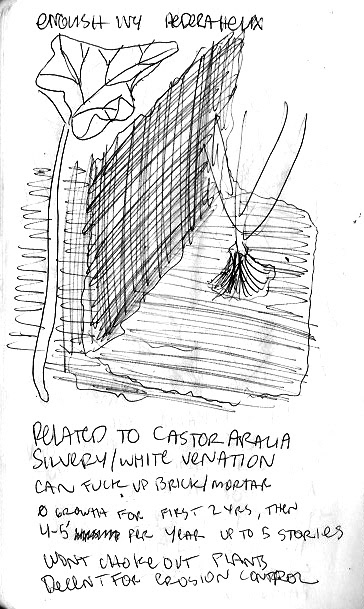 ENGLISH IVY HEDERA HELIX
RELATED TO CASTOR ARALIA
SILVERY/WHITE VENATION
CAN FUCK UP BRICK/MORTAR
0 GROWTH FOR FIRST 2 YRS, THEN
4-5' PER YEAR UP TO 5 STORIES
WONT CHOKE OUT PLANTS
DECENT FOR EROSION CONTROL